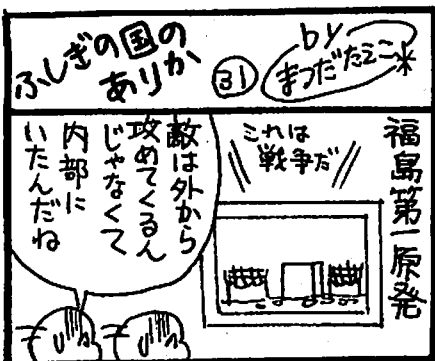 ふしぎの国の
ありか
31
by
まつだたえこ*
福島第一原発
これは
戦争だ
敵は外から
攻めてくるん
じゃなくて
内部に
いたんだね